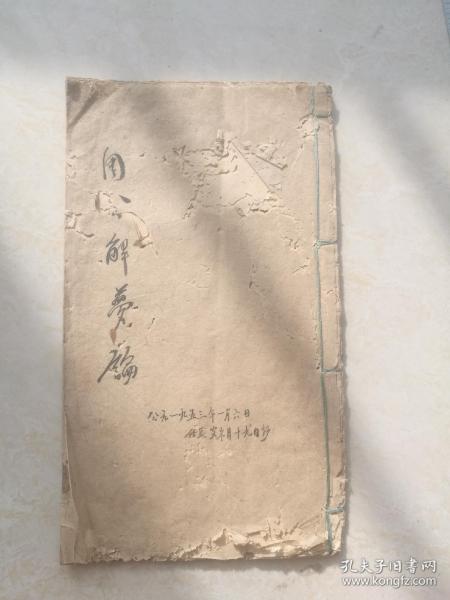 周公解夢
公元一九五三年一月六日
月十九日抄
孔夫子旧书网
www.kongfz.com